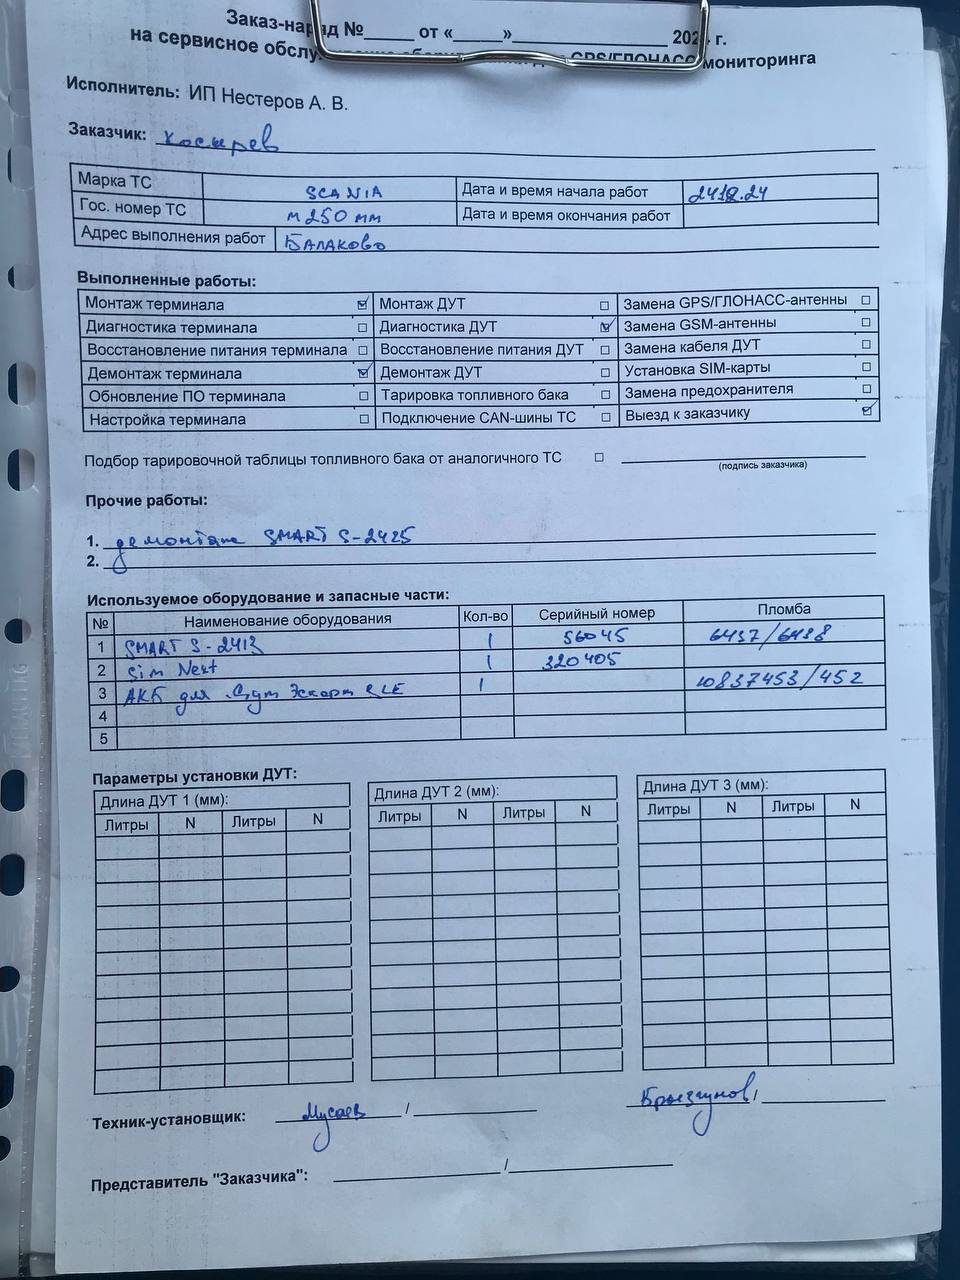 Заказ-наряд №_____ от «_____»_______________ 202 г.
на сервисное обслу GPS/ГЛОНАСС мониторинга
Исполнитель: ИП Нестеров А. В.
Заказчик: Косырев
Марка ТС SCANIA Дата и время начала работ 24.12.24
Гос. номер ТС М250ММ Дата и время окончания работ
Адрес выполнения работ БАЛАКОВО
Выполненные работы:
Монтаж терминала ☑ Монтаж ДУТ □ Замена GPS/ГЛОНАСС-антенны □
Диагностика терминала □ Диагностика ДУТ ☑ Замена GSM-антенны □
Восстановление питания терминала □ Восстановление питания ДУТ □ Замена кабеля ДУТ □
Демонтаж терминала ☑ Демонтаж ДУТ □ Установка SIM-карты □
Обновление ПО терминала □ Тарировка топливного бака □ Замена предохранителя □
Настройка терминала □ Подключение CAN-шины ТС □ Выезд к заказчику ☑
Подбор тарировочной таблицы топливного бака от аналогичного ТС □
(подпись заказчика)
Прочие работы:
1. демонтаж SMART S-2425
2.
Используемое оборудование и запасные части:
№ Наименование оборудования Кол-во Серийный номер Пломба
1 SMART S-2413 1 56045 6437/6438
2 Sim Next 1 320405
3 АКБ для Дут Эскорт BLE 1 10837453/452
4
5
Параметры установки ДУТ:
Длина ДУТ 1 (мм): Длина ДУТ 2 (мм): Длина ДУТ 3 (мм):
Литры N Литры N Литры N Литры N Литры N Литры N
Техник-установщик: Мусаев / Брызгунов /
Представитель "Заказчика": /